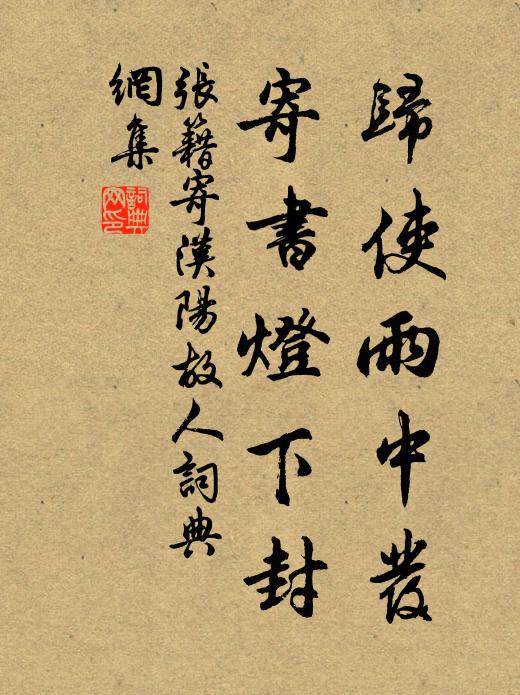 歸使雨中發
寄書燈下封
張籍寄漢陽故人詞典
網集
詞典
网印